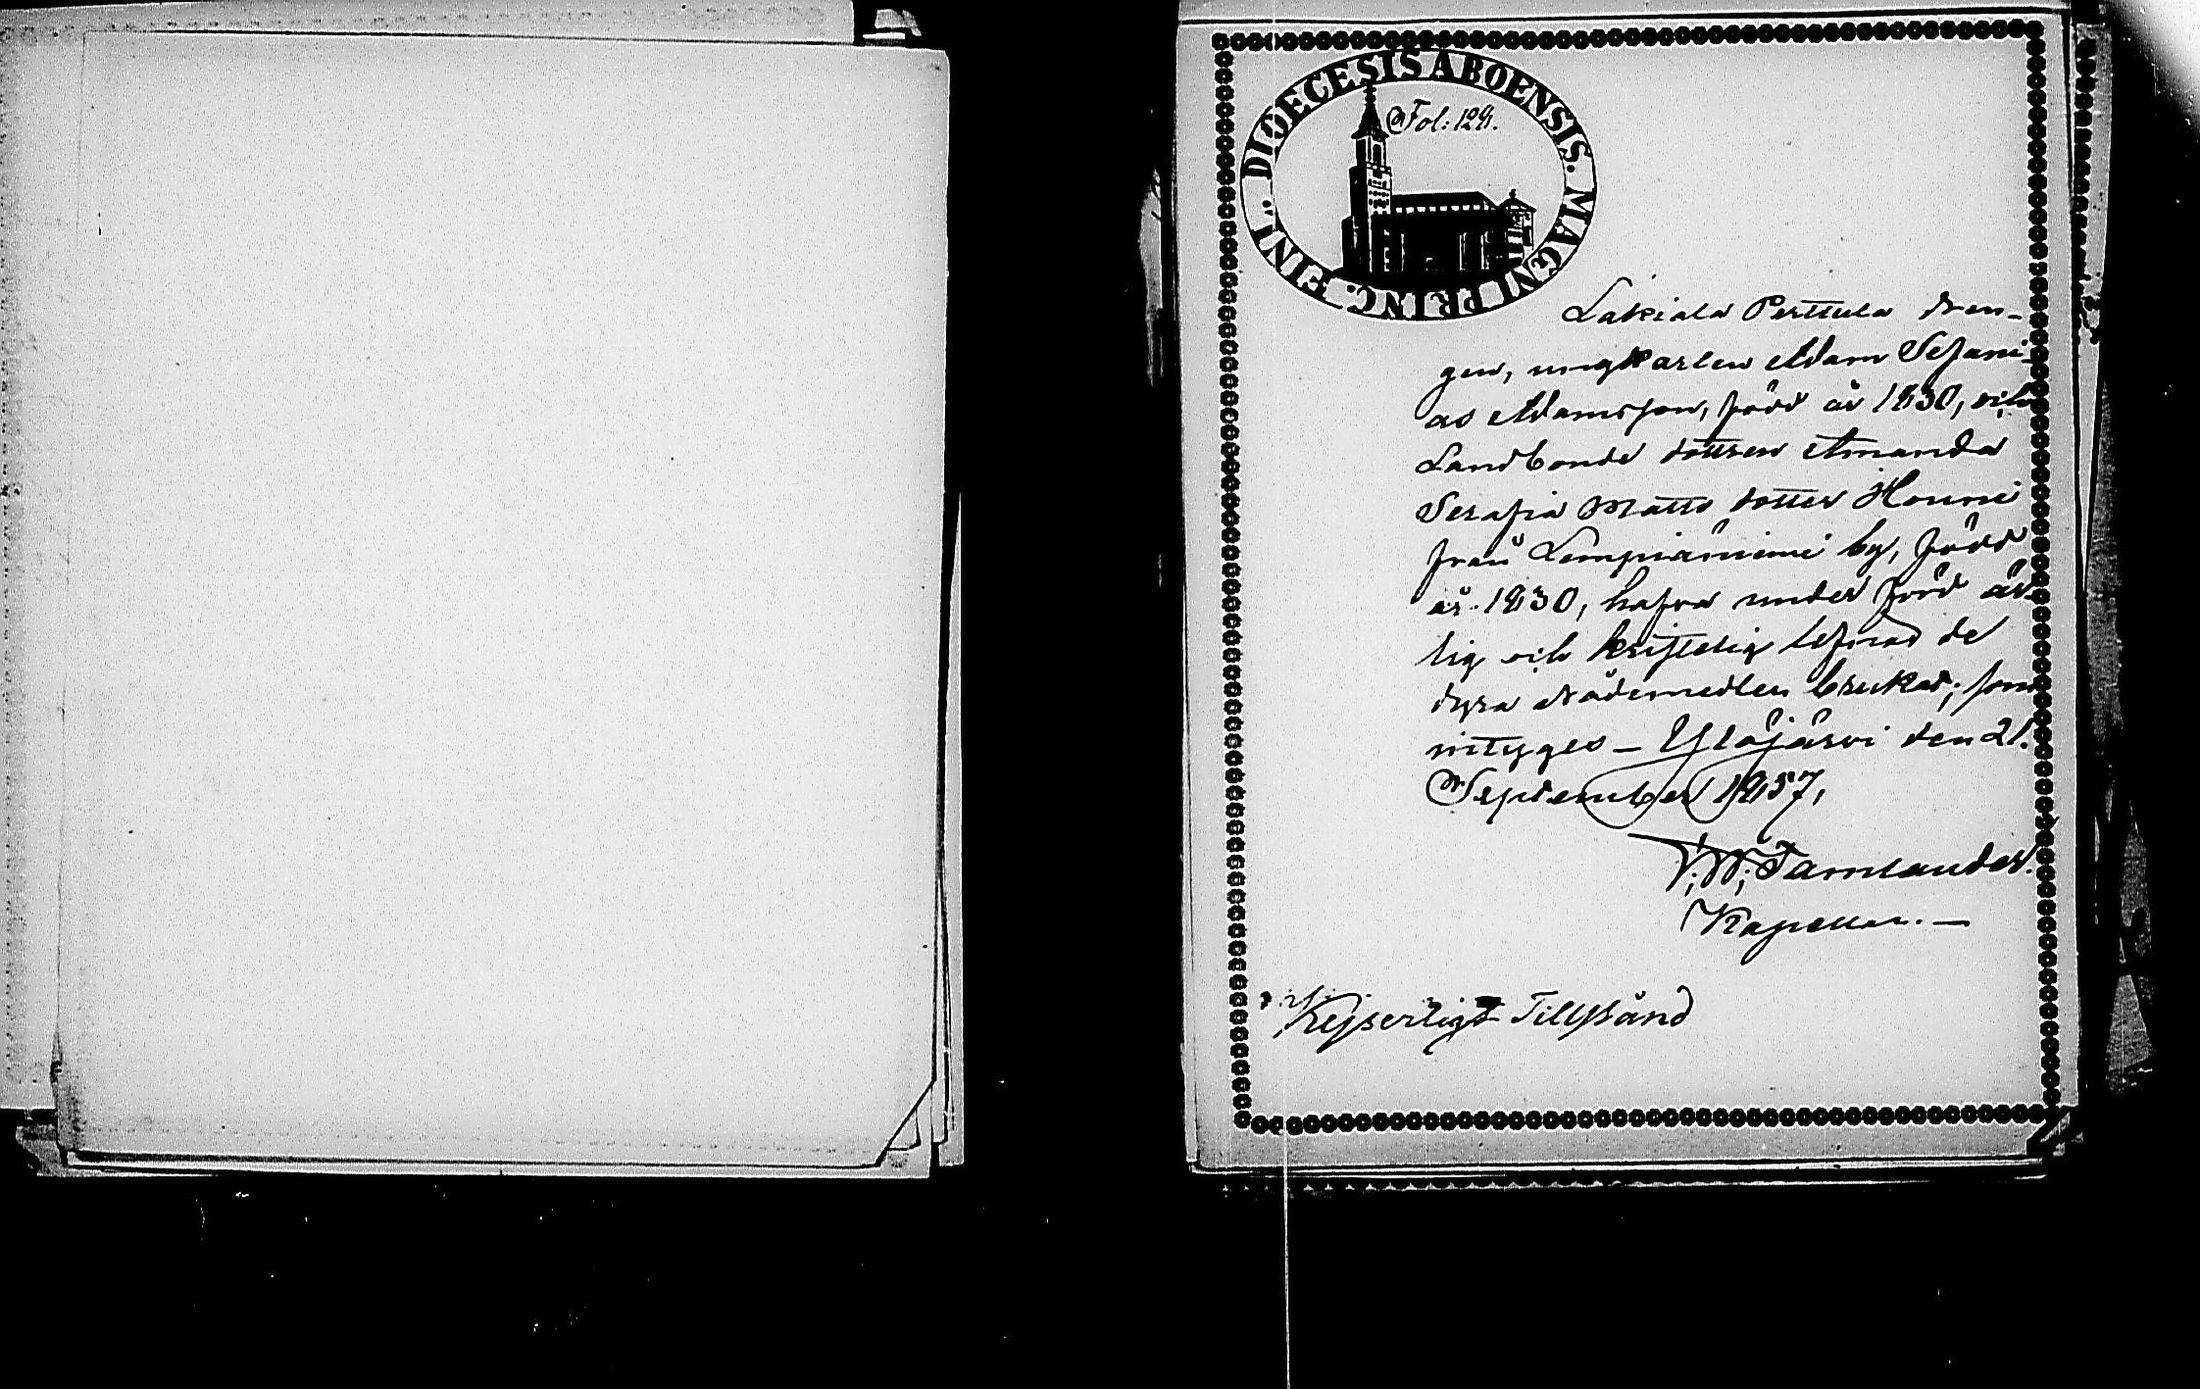 DIOECESIS ABOENSIS. MAGNI PRINC. FINL.
Fol: 124.
Lakiala Perttula dren-
gen, ungkarlen Adam Sefani-
as Adamsson, född år 1830, och
Landbonde dottren Amanda
Serafia Matts dotter Honni
från Lempiäniemi by, född
år 1830, hafva under förd är-
lig och kristelig lefnad de
dyra Nådemedlen brukat; som
intygges – Ylöjärvi den 21.
September 1857,
V. W. Tamlander.
Kapellan. –
Kejserligt Tillstånd